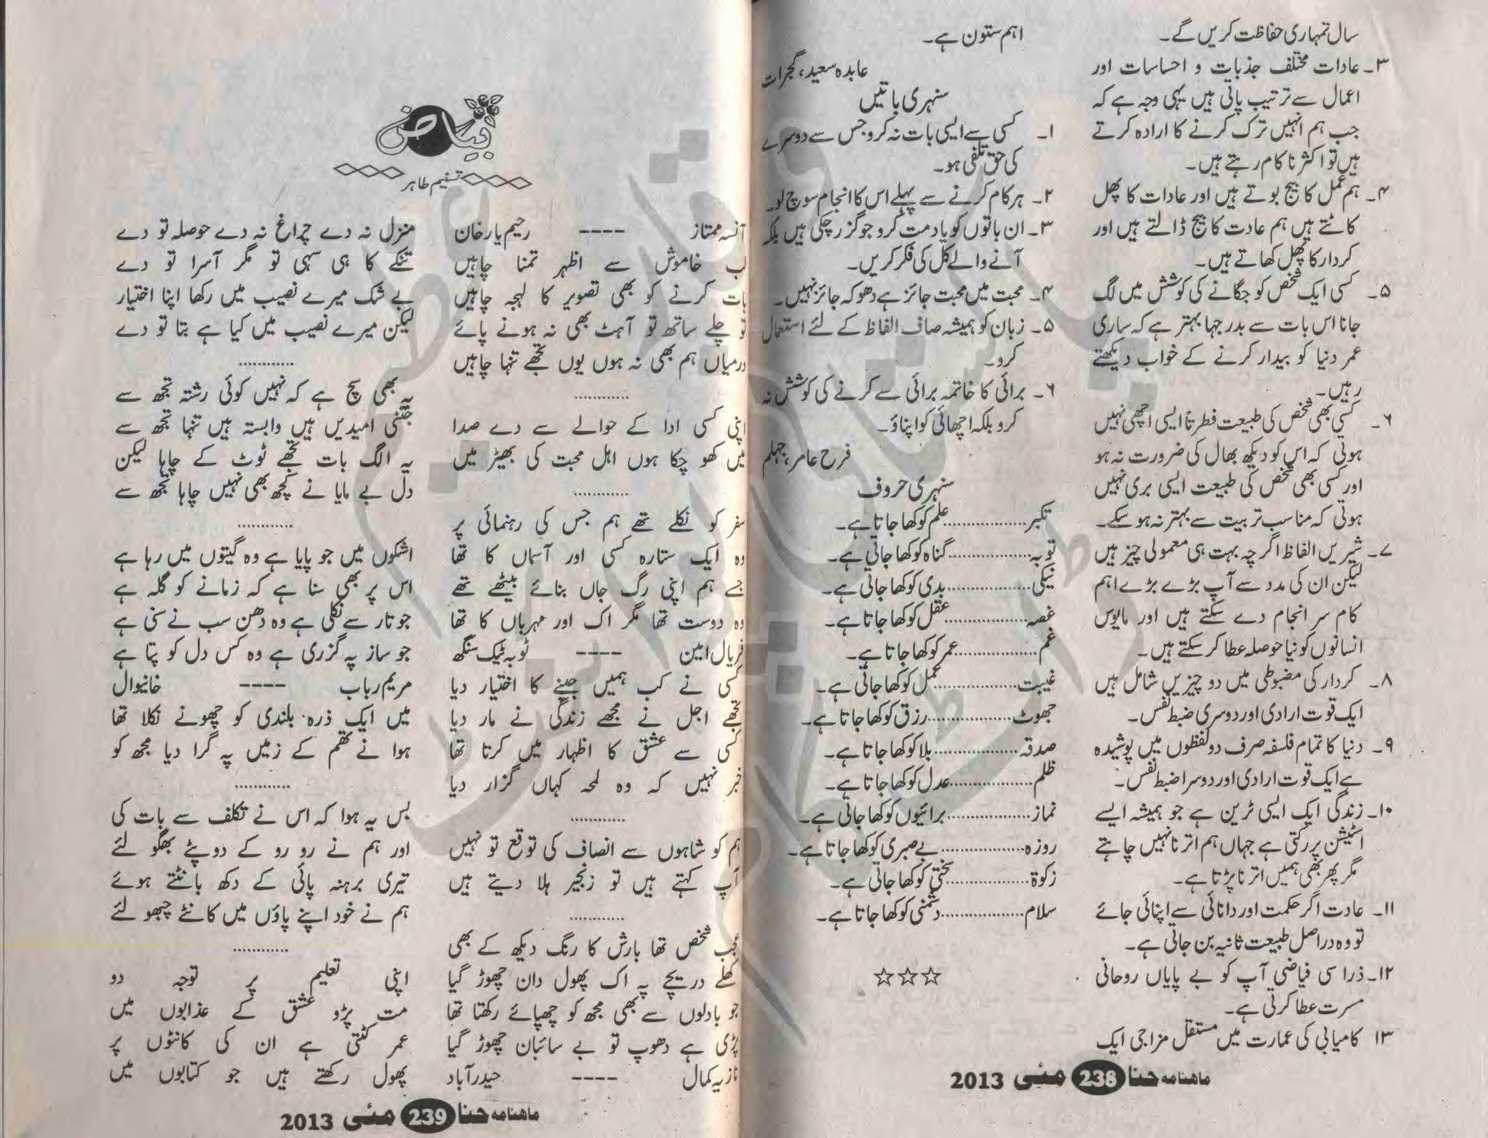 سال تمہاری حفاظت کریں گے۔
۳۔ عادات مختلف جذبات و احساسات اور
اعمال سے ترتیب پاتی ہیں یہی وجہ ہے کہ
جب ہم انہیں ترک کرنے کا ارادہ کرتے
ہیں تو اکثر ناکام رہتے ہیں۔
۴۔ ہم عمل کا بیج بوتے ہیں اور عادات کا پھل
کاٹتے ہیں ہم عادت کا بیج ڈالتے ہیں اور
کردار کا پھل کھاتے ہیں۔
۵۔ کسی ایک شخص کو جگانے کی کوشش میں لگ
جانا اس بات سے بدرجہا بہتر ہے کہ ساری
عمر دنیا کو بیدار کرنے کے خواب دیکھتے
رہیں۔
۶۔ کسی بھی شخص کی طبیعت فطرتاً ایسی اچھی نہیں
ہوتی کہ اس کو دیکھ بھال کی ضرورت نہ ہو
اور کسی بھی شخص کی طبیعت ایسی بری نہیں
ہوتی کہ مناسب تربیت سے بہتر نہ ہو سکے۔
۷۔ شیریں الفاظ اگرچہ بہت ہی معمولی چیز ہیں
لیکن ان کی مدد سے آپ بڑے بڑے اہم
کام سر انجام دے سکتے ہیں اور مایوس
انسانوں کو نیا حوصلہ عطا کر سکتے ہیں۔
۸۔ کردار کی مضبوطی میں دو چیزیں شامل ہیں
ایک قوت ارادی اور دوسری ضبط نفس۔
۹۔ دنیا کا تمام فلسفہ صرف دو لفظوں میں پوشیدہ
ہے ایک قوت ارادی اور دوسرا ضبط نفس۔
۱۰۔ زندگی ایک ایسی ٹرین ہے جو ہمیشہ ایسے
اسٹیشن پر رکتی ہے جہاں ہم اترنا نہیں چاہتے
مگر پھر بھی ہمیں اترنا پڑتا ہے۔
۱۱۔ عادت اگر حکمت اور دانائی سے اپنائی جائے
تو وہ دراصل طبیعت ثانیہ بن جاتی ہے۔
۱۲۔ ذرا سی فیاضی آپ کو بے پایاں روحانی
مسرت عطا کرتی ہے۔
۱۳ کامیابی کی عمارت میں مستقل مزاجی ایک
اہم ستون ہے۔
عابدہ سعید، گجرات
سنہری باتیں
۱۔ کسی سے ایسی بات نہ کرو جس سے دوسرے
کی حق تلفی ہو۔
۲۔ ہر کام کرنے سے پہلے اس کا انجام سوچ لو۔
۳۔ ان باتوں کو یاد مت کرو جو گزر چکی ہیں بلکہ
آنے والے کل کی فکر کریں۔
۴۔ محبت میں محبت جائز ہے دھوکہ جائز نہیں۔
۵۔ زبان کو ہمیشہ صاف الفاظ کے لئے استعمال
کرو۔
۶۔ برائی کا خاتمہ برائی سے کرنے کی کوشش نہ
کرو بلکہ اچھائی کو اپناؤ۔
فرح عامر، جہلم
سنہری حروف
تکبر..................علم کو کھا جاتا ہے۔
توبہ..................گناہ کو کھا جاتی ہے۔
نیکی..................بدی کو کھا جاتی ہے۔
غصہ..................عقل کو کھا جاتا ہے۔
غم..................عمر کو کھا جاتا ہے۔
غیبت..................عمل کو کھا جاتی ہے۔
جھوٹ..................رزق کو کھا جاتا ہے۔
صدقہ..................بلا کو کھا جاتا ہے۔
ظلم..................عدل کو کھا جاتا ہے۔
نماز..................برائیوں کو کھا جاتی ہے۔
روزہ..................بے صبری کو کھا جاتا ہے۔
زکوۃ..................سختی کو کھا جاتی ہے۔
سلام..................دشمنی کو کھا جاتا ہے۔
☆☆☆
ماهنامه حنا 238 مئی 2013
بیاض
تسنیم طاہر
آنسہ ممتاز ---- رحیم یار خان
لب خاموش سے اظہر تمنا چاہیں
بات کرنے کو بھی تصویر کا لہجہ چاہیں
تو چلے ساتھ تو آہٹ بھی نہ ہونے پائے
درمیاں ہم بھی نہ ہوں یوں تجھے تنہا چاہیں
............
اپنی کسی ادا کے حوالے سے دے صدا
میں کھو چکا ہوں اہل محبت کی بھیڑ میں
............
سفر کو نکلے تھے ہم جس کی رہنمائی پر
وہ ایک ستارہ کسی اور آسماں کا تھا
جسے ہم اپنی رگ جاں بنائے بیٹھے تھے
وہ دوست تھا مگر اک اور مہرباں کا تھا
فریال امین ---- ٹوبہ ٹیک سنگھ
کسی نے کب ہمیں جینے کا اختیار دیا
تجھے اجل نے مجھے زندگی نے مار دیا
کسی سے عشق کا اظہار میں کرتا تھا
خبر نہیں کہ وہ لمحہ کہاں گزار دیا
............
ہم کو شاہوں سے انصاف کی توقع تو نہیں
آپ کہتے ہیں تو زنجیر ہلا دیتے ہیں
............
عجب شخص تھا بارش کا رنگ دیکھ کے بھی
کھلے دریچے پہ اک پھول دان چھوڑ گیا
جو بادلوں سے بھی مجھ کو چھپائے رکھتا تھا
پڑی ہے دھوپ تو بے سائبان چھوڑ گیا
نازیہ کمال ---- حیدرآباد
منزل نہ دے چراغ نہ دے حوصلہ تو دے
تنکے کا ہی سہی تو مگر آسرا تو دے
بے شک میرے نصیب میں رکھا اپنا اختیار
لیکن میرے نصیب میں کیا ہے بتا تو دے
............
یہ بھی سچ ہے کہ نہیں کوئی رشتہ تجھ سے
جتنی امیدیں ہیں وابستہ ہیں تنہا تجھ سے
یہ الگ بات تجھے ٹوٹ کے چاہا لیکن
دل بے مایا نے کچھ بھی نہیں چاہا تجھ سے
............
اشکوں میں جو پایا ہے وہ گیتوں میں رہا ہے
اس پر بھی سنا ہے کہ زمانے کو گلہ ہے
جو تار سے نکلی ہے وہ دھن سب نے سنی ہے
جو ساز پہ گزری ہے وہ کس دل کو پتا ہے
مریم رباب ---- خانیوال
میں ایک ذرہ بلندی کو چھونے نکلا تھا
ہوا نے تھم کے زمیں پہ گرا دیا مجھ کو
............
بس یہ ہوا کہ اس نے تکلف سے بات کی
اور ہم نے رو رو کے دوپٹے بھگو لئے
تیری برہنہ پائی کے دکھ بانٹتے ہوئے
ہم نے خود اپنے پاؤں میں کانٹے چبھو لئے
............
اپنی تعلیم پر توجہ دو
مت پڑو عشق کے عذابوں میں
عمر کٹتی ہے ان کی کانٹوں پر
پھول رکھتے ہیں جو کتابوں میں
ماهنامه حنا 239 مئی 2013